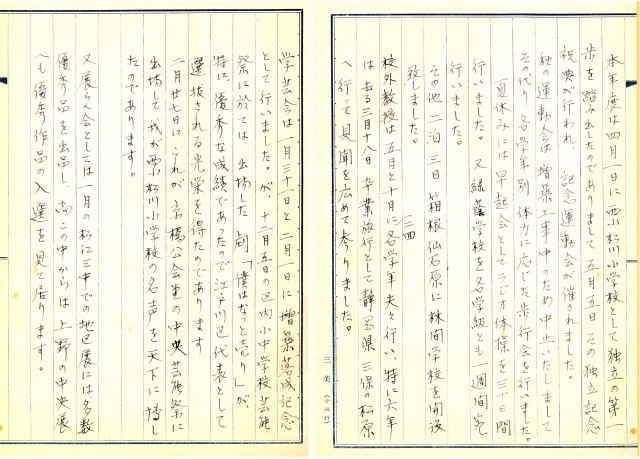 本年度は四月一日に西小松川小学校として独立の第一
歩を踏み出したのでありまして五月五日その独立記念
祝典が行われ、記念運動会が催されました。
秋の運動会は増築工事中のため中止いたしまして
その代り各学年別体力に応じた歩行会を行いました。
夏休みには早起会としてラジオ体操を三十日間
行いました。又緑蔭学校を各学級とも一週間宛
行いました。
その他二泊三日箱根仙石原に林間学校を開設
致しました。
三四
校外教授は五月と十月に各学年夫々行い、特に六年
は去る三月十八日卒業旅行として静岡県三保の松原
へ行って見聞を広めて参りました。
三美
学芸会は一月三十一日と二月一日に増築落成記念
として行いました。が、十二月五日の区内小中学校芸能
祭に於ては出場した劇「僕はなっと売り」が、
特に優秀な成績であったので江戸川区代表として
選抜される光栄を得たのであります
二月廿七日にこれが京橋公会堂の中央芸能祭に
出場して我が西小松川小学校の名声を天下に博し
たのであります。
又展らん会としては一月の松江三中での地区展には多数
優秀品を出品し、尚この中からは上野の中央展
へも優秀作品の入選を見て居ります。